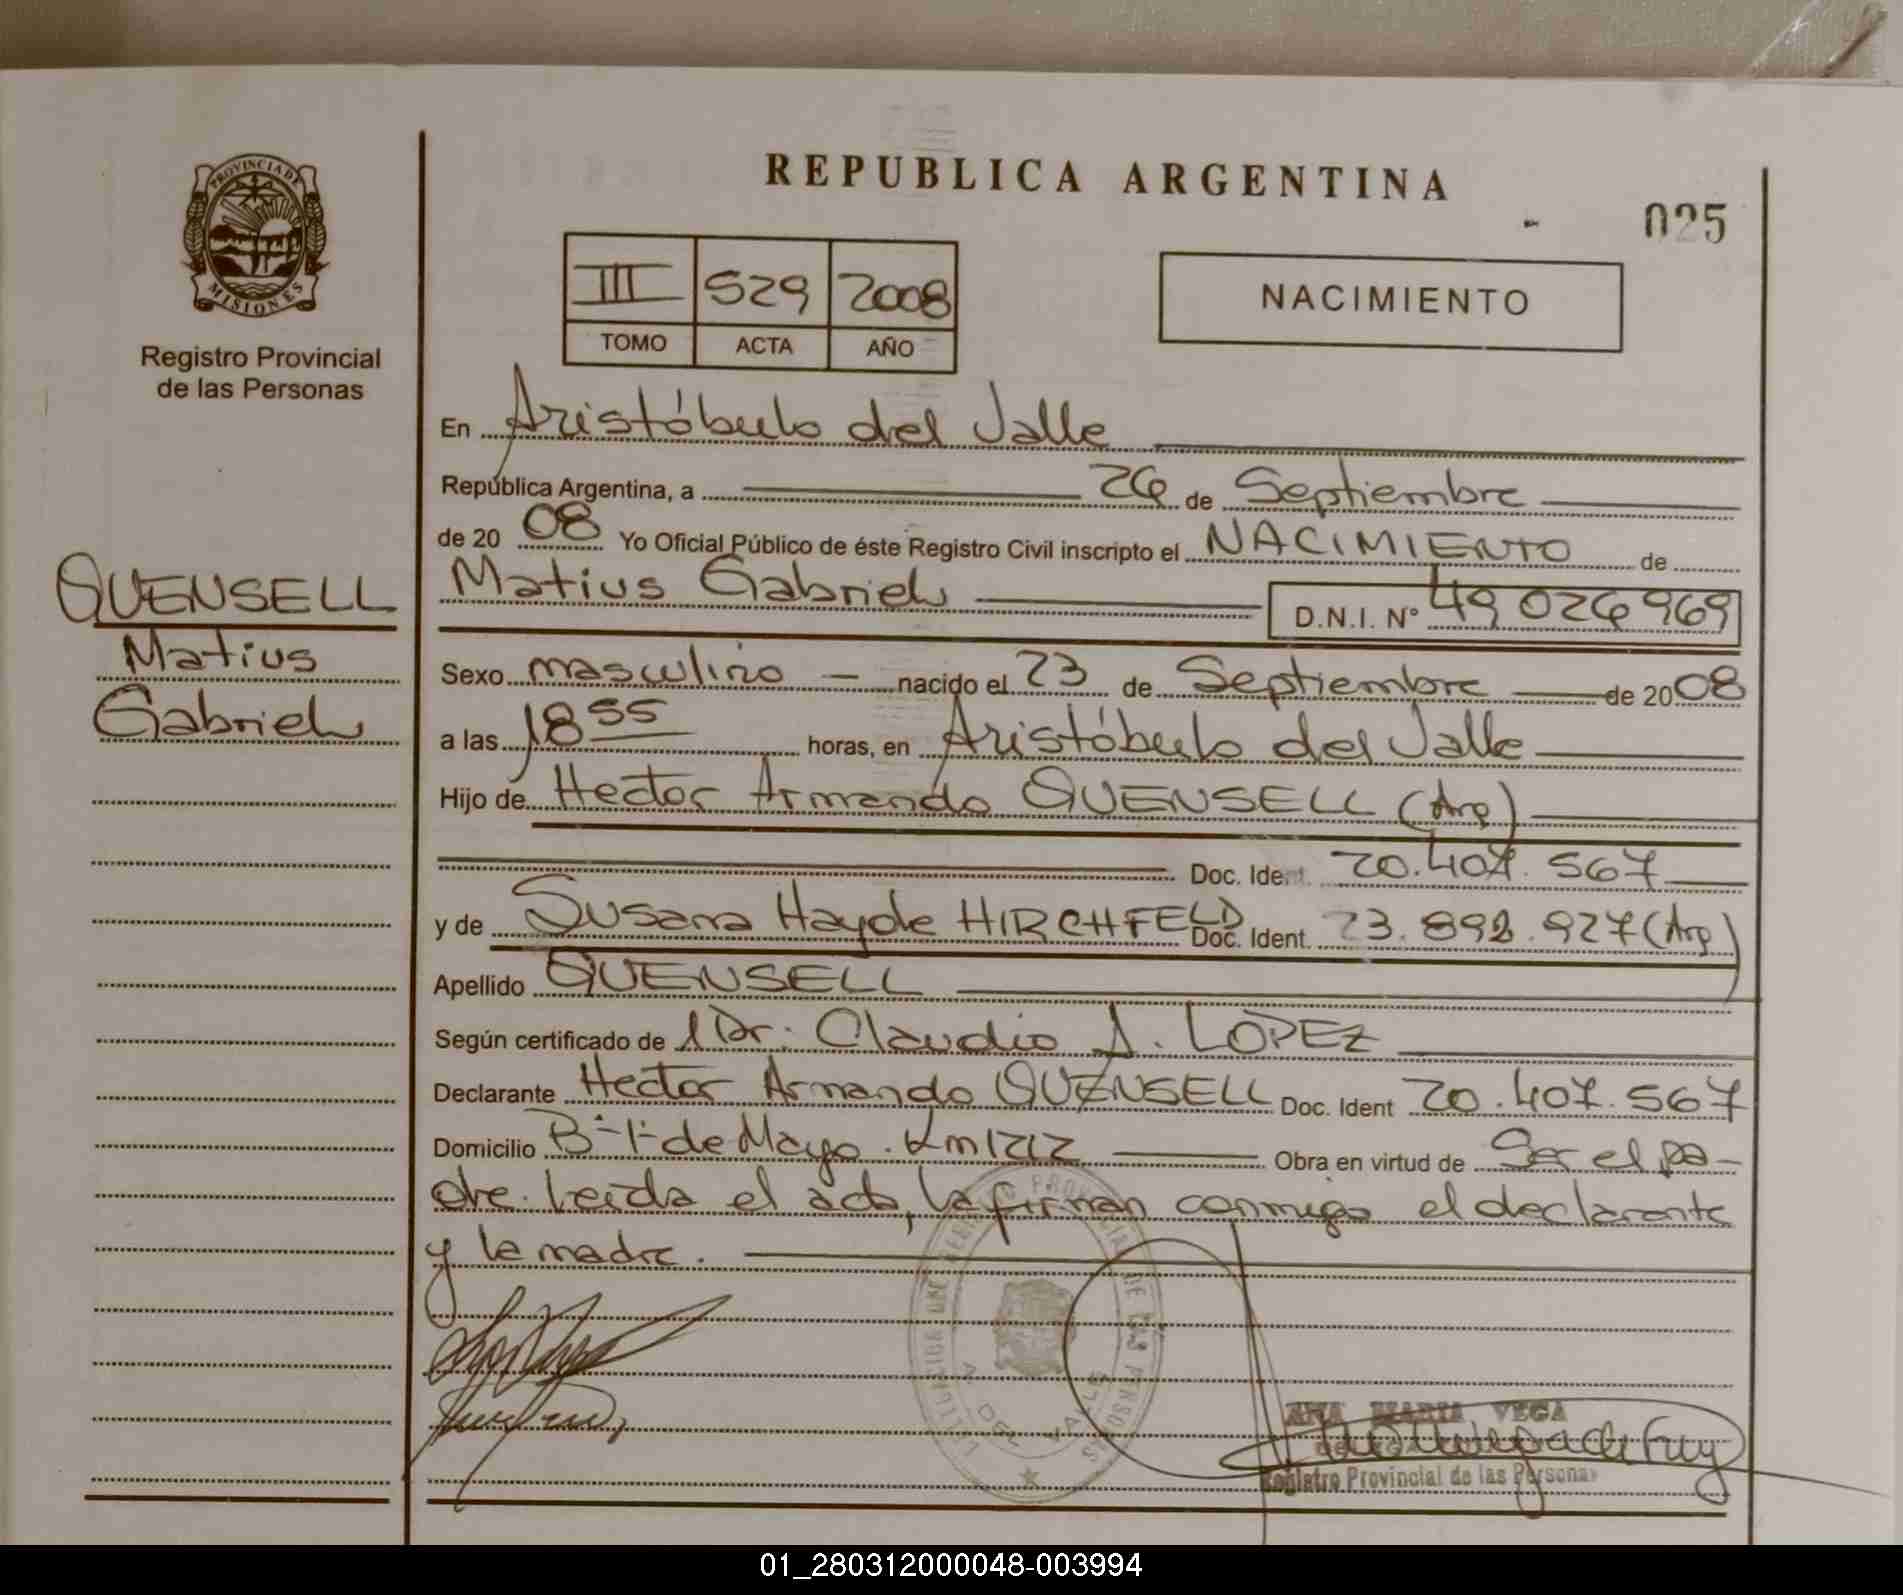 PROVINCIA DE
MISIONES
Registro Provincial
de las Personas
QUENSELL
Matius
Gabriel
REPUBLICA ARGENTINA
025
III 529 2008
TOMO ACTA AÑO
NACIMIENTO
En Aristóbulo del Valle
República Argentina, a 26 de Septiembre
de 20 08 Yo Oficial Público de éste Registro Civil inscripto el NACIMIENTO de
Matius Gabriel D.N.I. N° 49 026 969
Sexo masculino nacido el 23 de Septiembre de 20 08
a las 18 55 horas, en Aristóbulo del Valle
Hijo de Hector Armando QUENSELL (Arg)
Doc. Ident. 20.407.567
y de Susana Hayde HIRCHFELD Doc. Ident. 23.898.927 (Arg)
Apellido QUENSELL
Según certificado de Dr. Claudio A. LOPEZ
Declarante Hector Armando QUENSELL Doc. Ident 20.407.567
Domicilio B° 1° de Mayo. Km 1212 Obra en virtud de Ser el pa-
dre. Leída el acta, la firman conmigo el declarante
y la madre.
ANA MARIA VEGA
Registro Provincial de las Personas
01_280312000048-003994